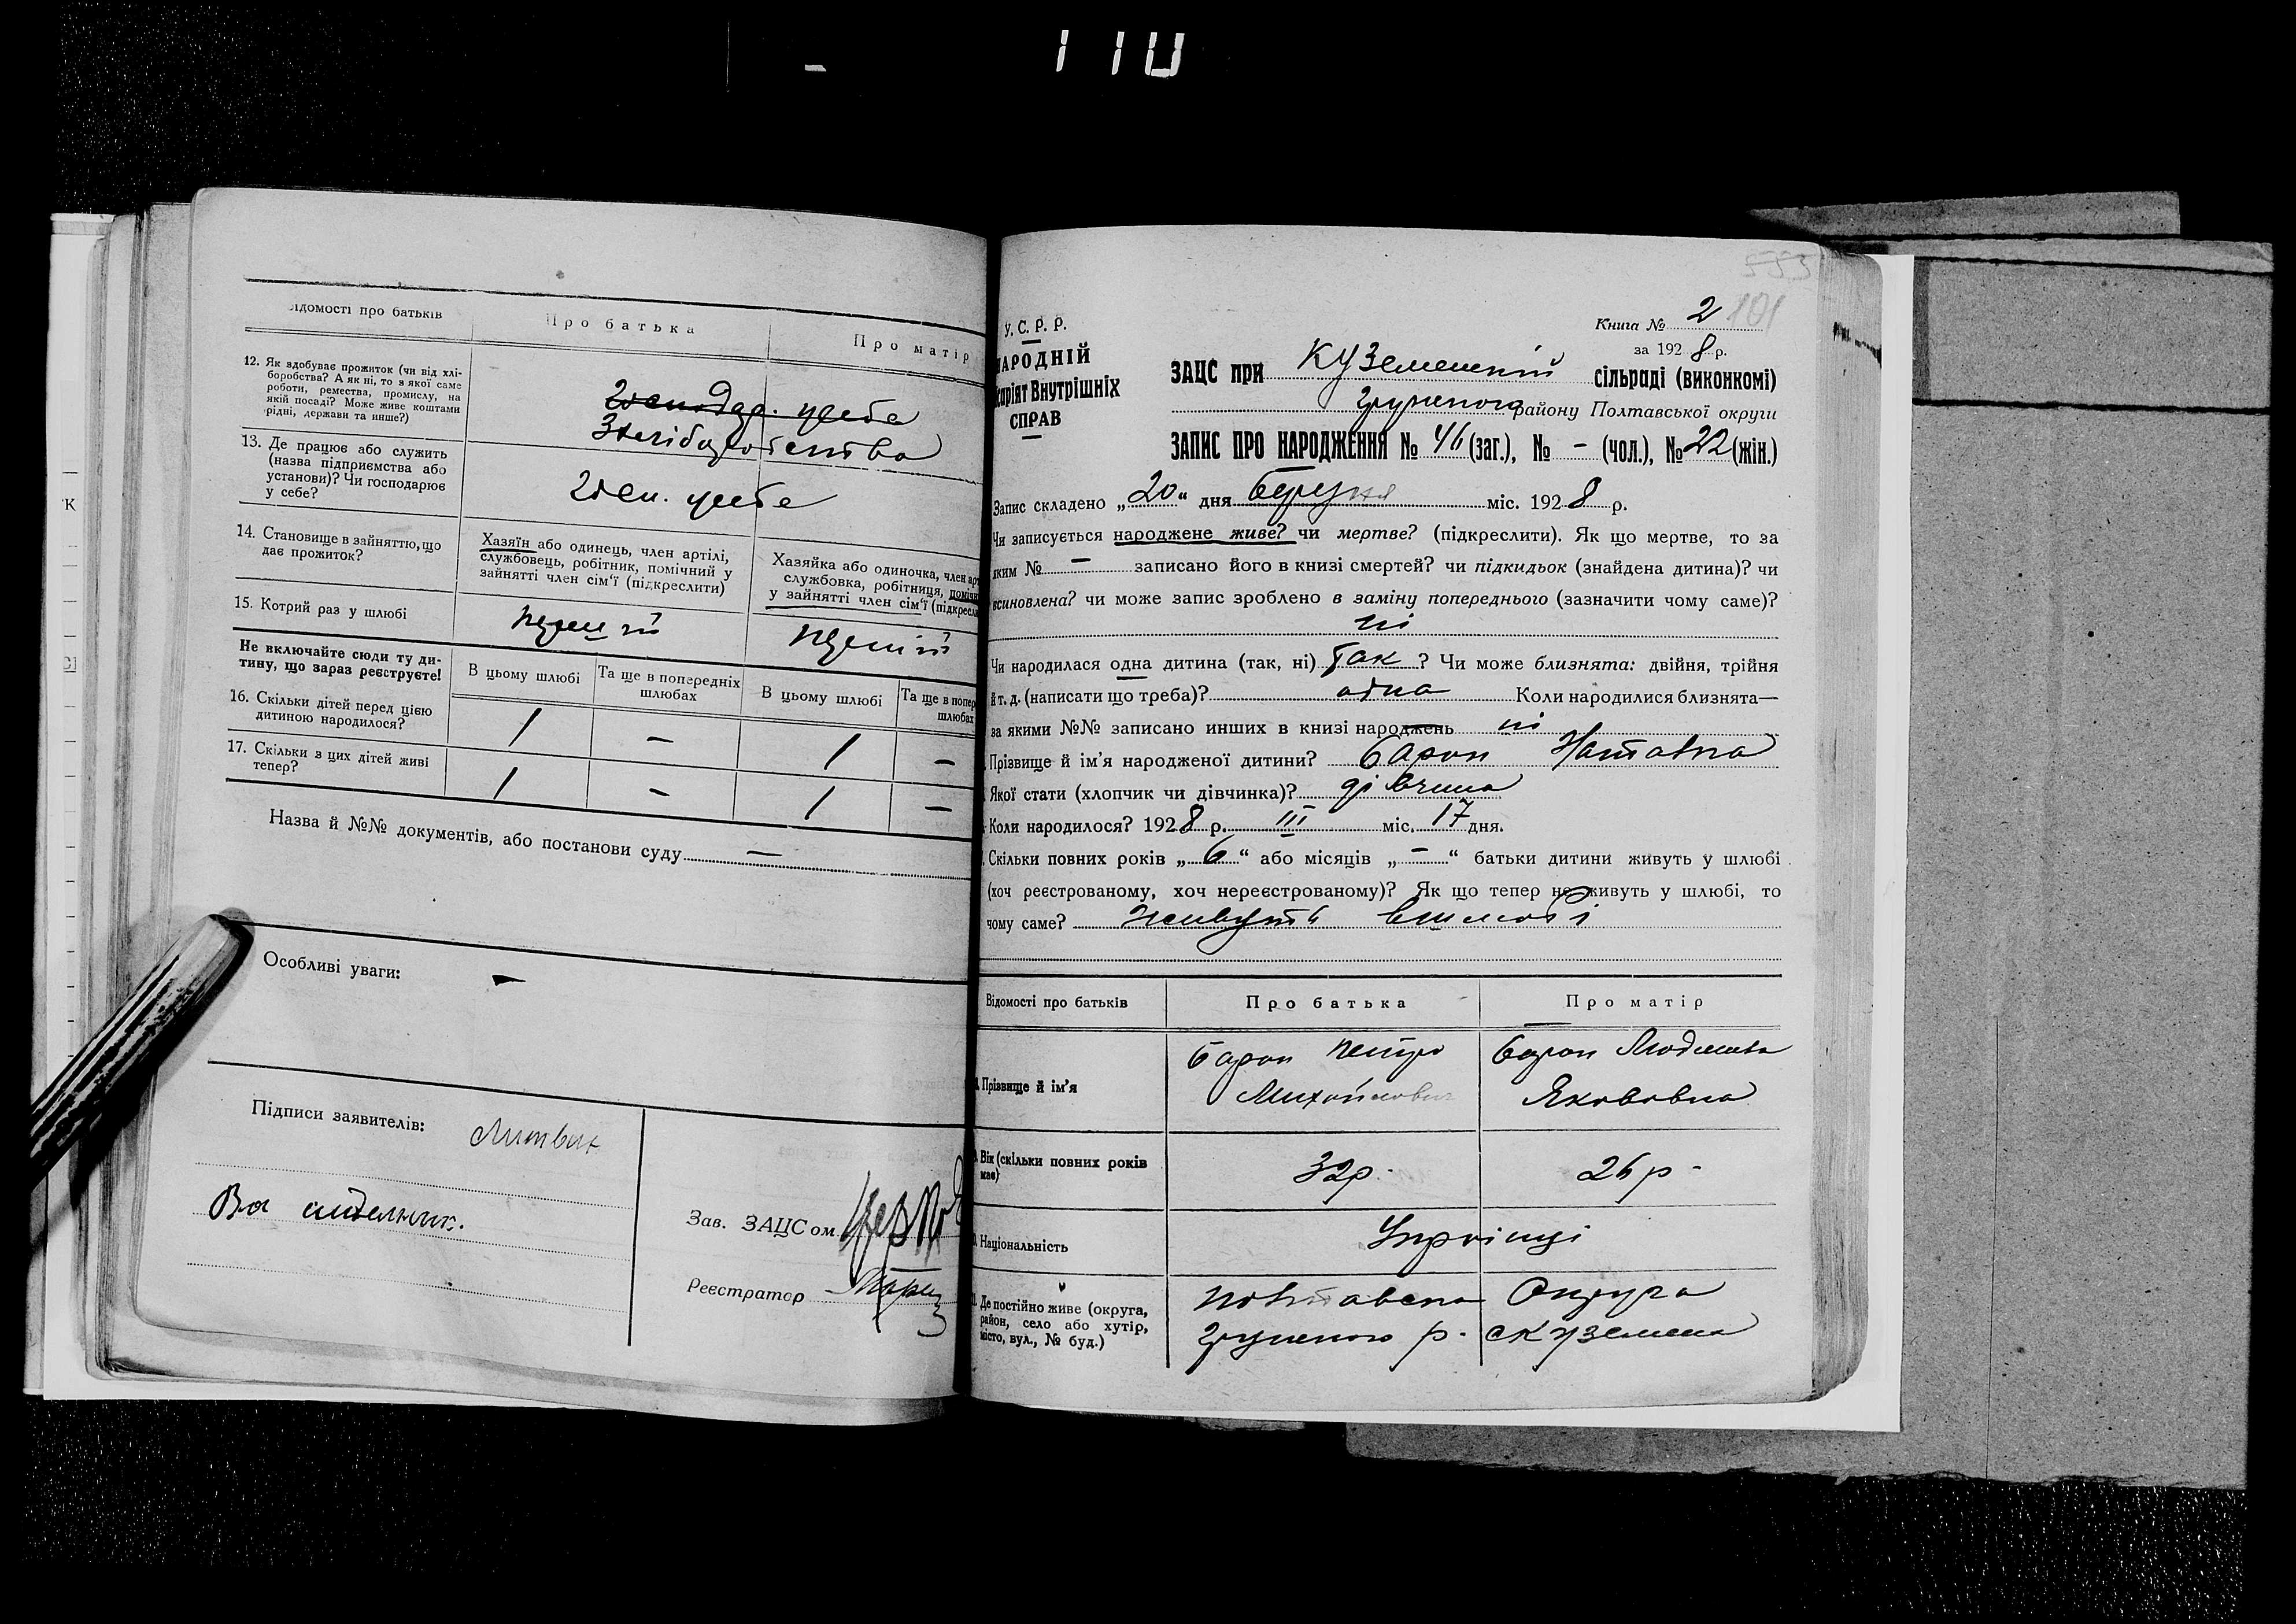 110
Відомості про батьків
Про батька
Про матір
12. Як здобуває прожиток (чи від хлі-
боробства? А як ні, то з якої саме
роботи, ремества, промислу, на
якій посаді? Може живе коштами
рідні, держави та инше?)
13. Де працює або служить
(назва підприємства або
установи)? Чи господарює
у себе?
14. Становище в зайняттю, що
дає прожиток?
Хазяїн або одинець, член артілі,
службовець, робітник, помічний у
зайнятті член сім'ї (підкреслити)
Хазяйка або одиночка, член арт
службовка, робітниця, помічн
у зайнятті член сім'ї (підкресл
15. Котрий раз у шлюбі
Не включайте сюди ту ди-
тину, що зараз реєструєте!
В цьому шлюбі
Та ще в попередніх
шлюбах
В цьому шлюбі
Та ще в попер
шлюбах
16. Скільки дітей перед цією
дитиною народилося?
1 — 1 —
17. Скільки з цих дітей живі
тепер?
1 — 1 —
Назва й №№ документів, або постанови суду —
Особливі уваги: —
Підписи заявителів: Литвин
Зав. ЗАЦСом
Реєстратор
553
101
У. С. Р. Р.
НАРОДНІЙ
Внутрішніх
СПРАВ
Книга № 2
за 1928 р.
ЗАЦС при Куземенській сільраді (виконкомі)
району Полтавської округи
ЗАПИС ПРО НАРОДЖЕННЯ № 46 (заг.), № - (чол.), № 22 (жін.)
Запис складено „20“ дня березня міс. 1928 р.
Чи записується народжене живе? чи мертве? (підкреслити). Як що мертве, то за
яким № — записано його в книзі смертей? чи підкидьок (знайдена дитина)? чи
всиновлена? чи може запис зроблено в заміну попереднього (зазначити чому саме)?
ні
Чи народилася одна дитина (так, ні) Так? Чи може близнята: двійня, трійня
й т. д. (написати що треба)? одна Коли народилися близнята—
за якими №№ записано инших в книзі народжень ні
Прізвище й ім'я народженої дитини? Барон Наталка
Якої стати (хлопчик чи дівчинка)? дівчина
Коли народилося? 1928 р. III міс. 17 дня.
Скільки повних років „6“ або місяців „-“ батьки дитини живуть у шлюбі
(хоч реєстрованому, хоч нереєстрованому)? Як що тепер не живуть у шлюбі, то
чому саме? живуть в шлюбі
Відомості про батьків
Про батька
Про матір
Прізвище й ім'я
Барон Петро
Михайлович
Барон
Якововна
Вік (скільки повних років
має)
32 р.
26 р -
Національність
Українці
Де постійно живе (округа,
район, село або хутір,
місто, вул., № буд.)
Полтавська Округа
р. с Куземена